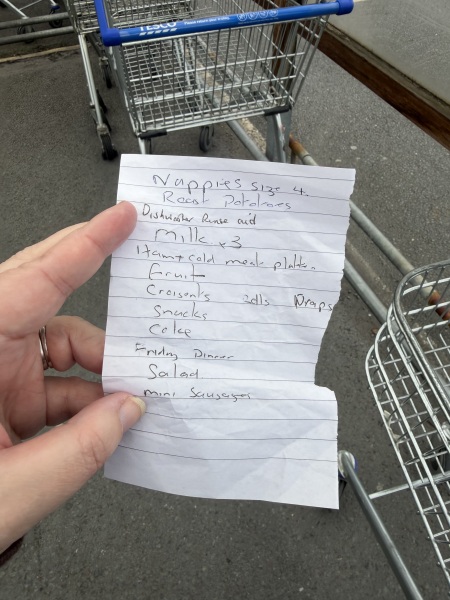 TESCO
Nappies size 4
Roast Potatoes
Dishwasher Rinse aid
Milk x3
Ham + cold meat platter
Fruit
Croisents rolls Wraps
Snacks
Cake
Friday Dinner
Salad
mini Sausages